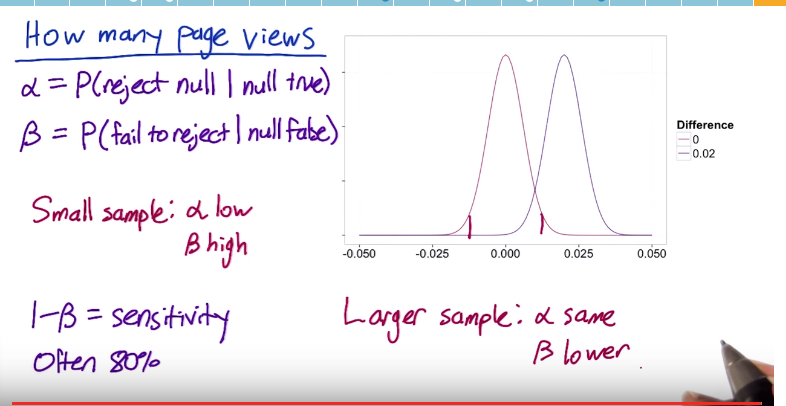 How many page views
α = P(reject null | null true)
β = P(fail to reject | null false)
Small sample: α low
β high
1-β = sensitivity
Often 80%
Difference
0
0.02
-0.050 -0.025 0.000 0.025 0.050
Larger sample: α same
β lower.